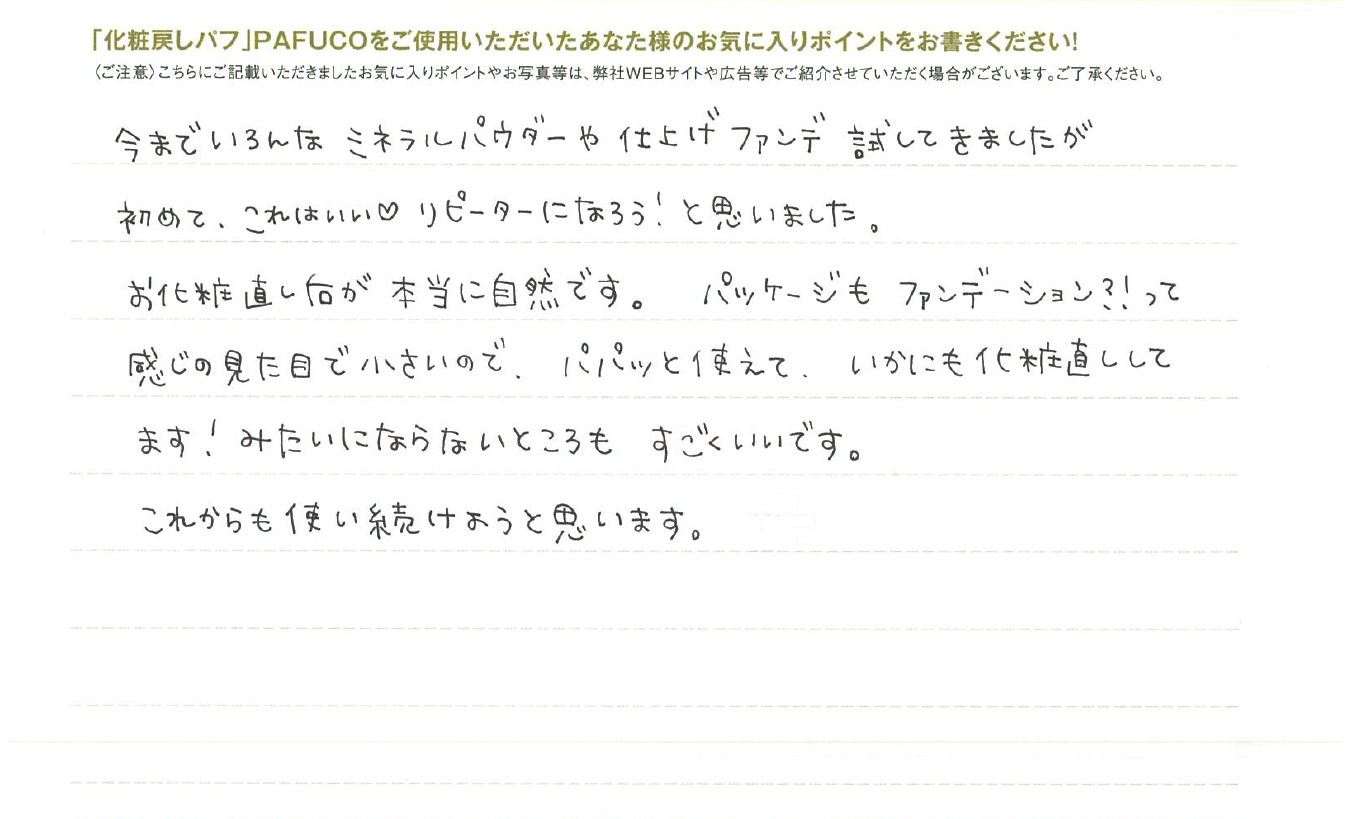 「化粧戻しパフ」PAFUCOをご使用いただいたあなた様のお気に入りポイントをお書きください!
〈ご注意〉こちらにご記載いただきましたお気に入りポイントやお写真等は、弊社WEBサイトや広告等でご紹介させていただく場合がございます。ご了承ください。
今までいろんな ミネラルパウダーや 仕上げ ファンデ 試してきましたが
初めて、これはいい♡ リピーターになろう!と思いました。
お化粧直し后が 本当に自然です。 パッケージも ファンデーション?!って
感じの見た目で小さいので、パパッと使えて、いかにも化粧直しして
ます!みたいにならないところも すごくいいです。
これからも使い続けようと思います。